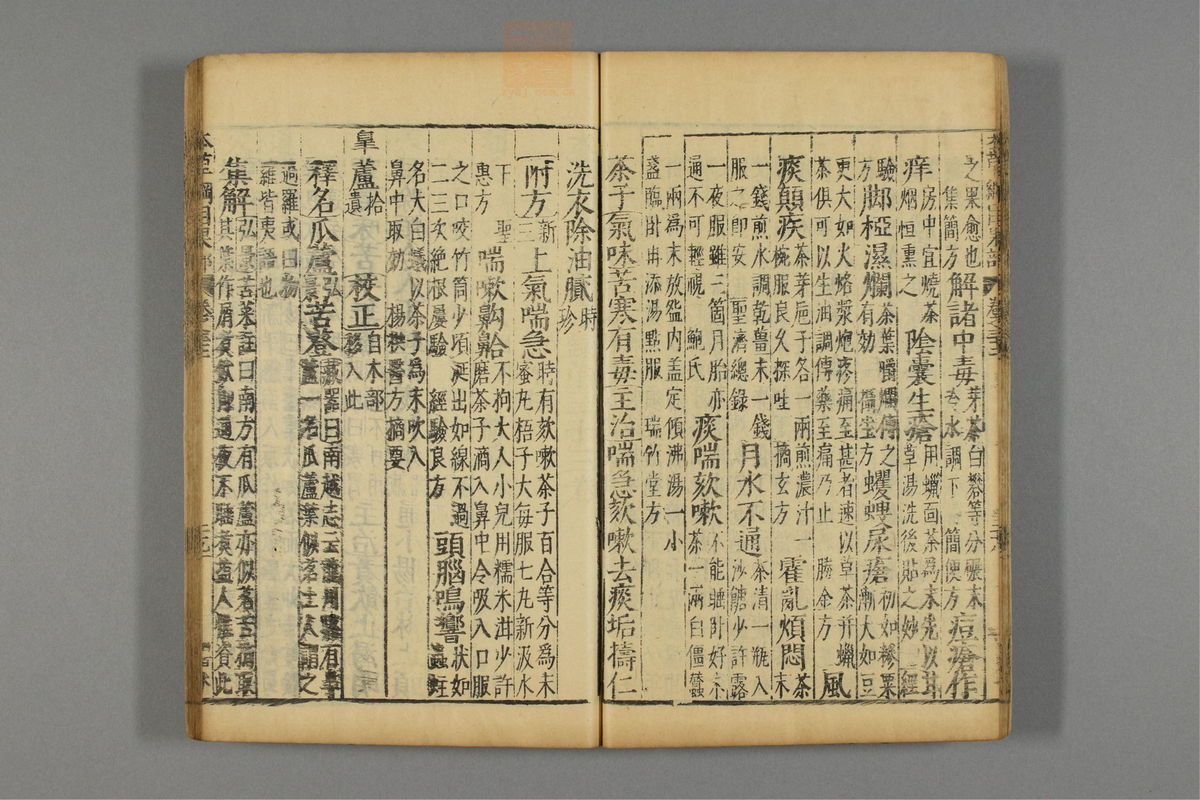 之果愈也
集簡方
解諸中毒
芽茶白礬等分碾末
冷水調下
簡便方
痘瘡作
痒
房中宜燒茶
烟恒熏之
陰囊生瘡
用蠟面茶爲末先以甘
草湯洗後貼之妙
經
驗方
脚椏濕爛
茶葉嚼爛傅之
有效
攝生方
蠼螋尿瘡
初如糝粟
漸大如豆
更大如火烙漿炮疼痛至甚者速以草茶并蠟
茶俱可以生油調傅藥至痛乃止
勝金方
風
痰顛疾
茶芽巵子各一兩煎濃汁一
椀服良久探吐
摘玄方
霍亂煩悶
茶末
一錢煎水調乾薑末一錢
服之即安
聖濟總錄
月水不通
茶清一瓶入
沙餹少許露
一夜服雖三箇月胎亦
通不可輕視
鮑氏
痰喘欬嗽
不能睡臥好末
茶一兩白僵蠶
一兩爲末放盌内盖定傾沸湯一小
盞臨臥再添湯點服
瑞竹堂方
茶子氣味苦寒有毒主治喘急欬嗽去痰垢擣仁
洗衣除油膩
時
珍
附方
新
三
上氣喘急
時有欬嗽茶子百合等分爲末
蜜丸梧子大每服七丸新汲水
下
聖
惠方
喘嗽齁䶎
不拘大人小兒用糯米泔少許
磨茶子滴入鼻中令吸入口服
之口咬竹筒少頃涎出如線不過
二三次絶根屢驗
經驗良方
頭腦鳴響
狀如
蟲蛀
名大白蟻以茶子爲末吹入
鼻中取效
楊拱醫方摘要
皐蘆
拾
遺
校正
自木部
移入此
釋名瓜蘆
弘
景
苦䔲
藏器曰南越志云龍川縣有皐
蘆一名瓜蘆葉似茗土人謂之
過羅或曰物
羅皆夷語也
集解
弘景苦菜註曰南方有瓜蘆亦似茗若摘取
其葉作屑煑飲即通夜不睡煑盬人惟資此